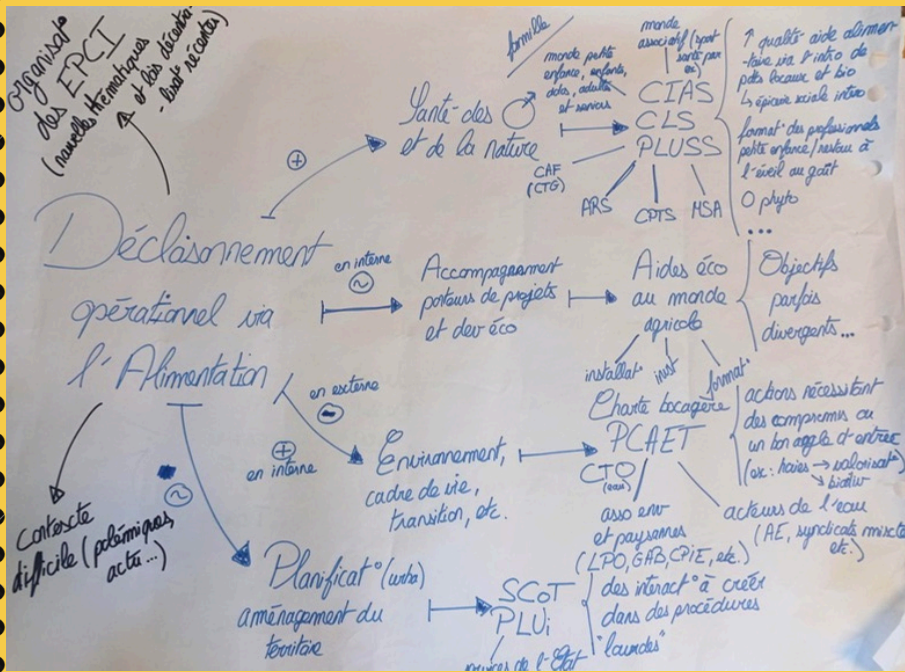 organisat°
des EPCI
(nouvelles thématiques
et lois décentra-
-lisat° récentes)
Décloisonnement
opérationnel via
l'Alimentation
Contexte
difficile (polémiques,
actu...)
+
Santé des ♂
et de la nature
famille
monde petite
enfance, enfants,
ados, adultes
et seniors
monde
associatif (sport
santé par
ex)
CIAS
CLS
PLUSS
CAF
(CTG)
ARS
CPTS
MSA
↑ qualité aide alimen-
-taire via l'intro de
pdts locaux et bio
↳ épicerie sociale interco
format° des professionnels
petite enfance/restau à
l'éveil au goût
0 phyto
...
en interne
~
Accompagnement
porteurs de projets
et dev éco
Aides éco
au monde
agricole
installat°
inst
format°
Objectifs
parfois
divergents...
en externe
-
+
en interne
Environnement,
cadre de vie,
transition, etc.
Charte bocagère
PCAET
CTO
(eau)
asso env
et paysannes
(LPO, GAB, CPIE, etc.)
acteurs de l'eau
(AE, syndicats mixtes
etc.)
actions nécessitant
des compromis ou
un bon angle d'entrée
(ex: haies → valorisat°
↘ biodiv
~
Planificat° (urba)
aménagement du
territoire
SCoT
PLUi
services de l'État
des interact° à créer
dans des procédures
"lourdes"